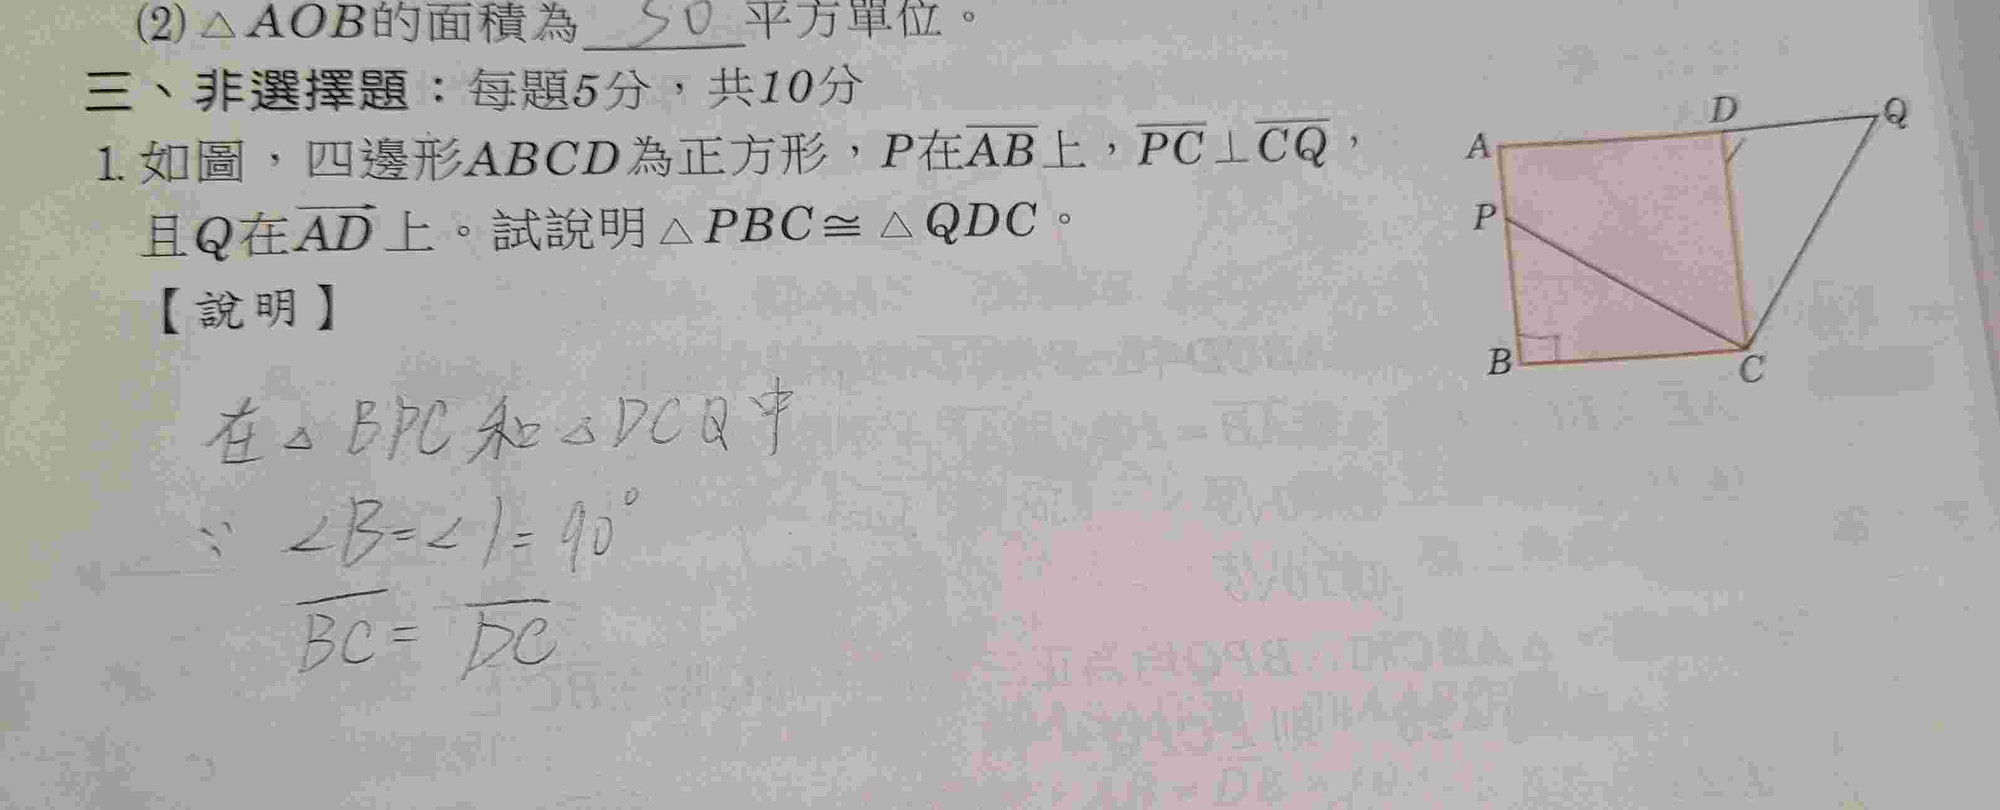 (2)△AOB的面積為 50 平方單位。
三、非選擇題：每題5分，共10分
1. 如圖，四邊形ABCD為正方形，P在A͞B͞上，P͞C͞⊥C͞Q͞，
且Q在AD⃗上。試說明△PBC≅△QDC。
【說明】
A
D
Q
P
B
C
在△BPC和△DCQ中
∵ ∠B=∠1=90°
B͞C͞=D͞C͞